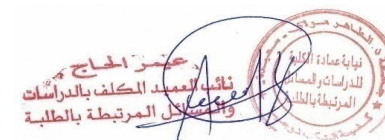 عيمر الحاج
نائب العميد المكلف بالدراسات
والمسائل المرتبطة بالطلبة
الطاهر
نيابة عمادة الكلية
للدراسات والمسائل
المرتبطة بالطلبة